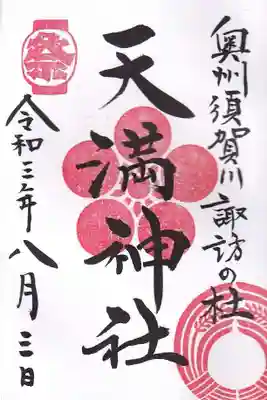 奥州須賀川諏訪の杜
天満神社
令和三年八月三日